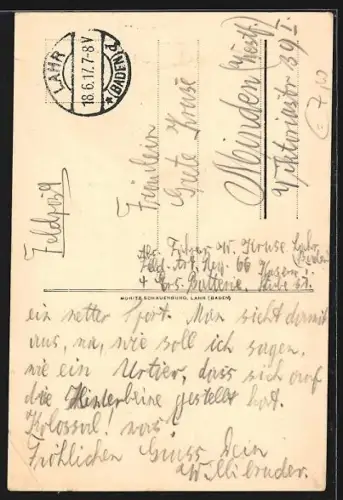 LAHR
18.6.17.7-8V
* (BADEN)
Feldpost
Fräulein
Grete Kruse
Minden Westf.
Viktoriastr 39 I.
Abs. Fahrer W. Kruse Lahr,
Feld. Art. Reg. 66 (Baden)
4 Ers. Batterie,
MORITZ SCHAUENBURG, LAHR (BADEN)
ein netter Sport. Man sieht damit
aus, na, wie soll ich sagen,
wie ein Urtier, dass sich auf
die Hinterbeine gestellt hat.
Kolossal! was?
Fröhlichen Gruss Dein